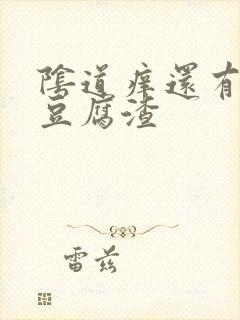 陰道痒還有
豆腐渣
雷兹